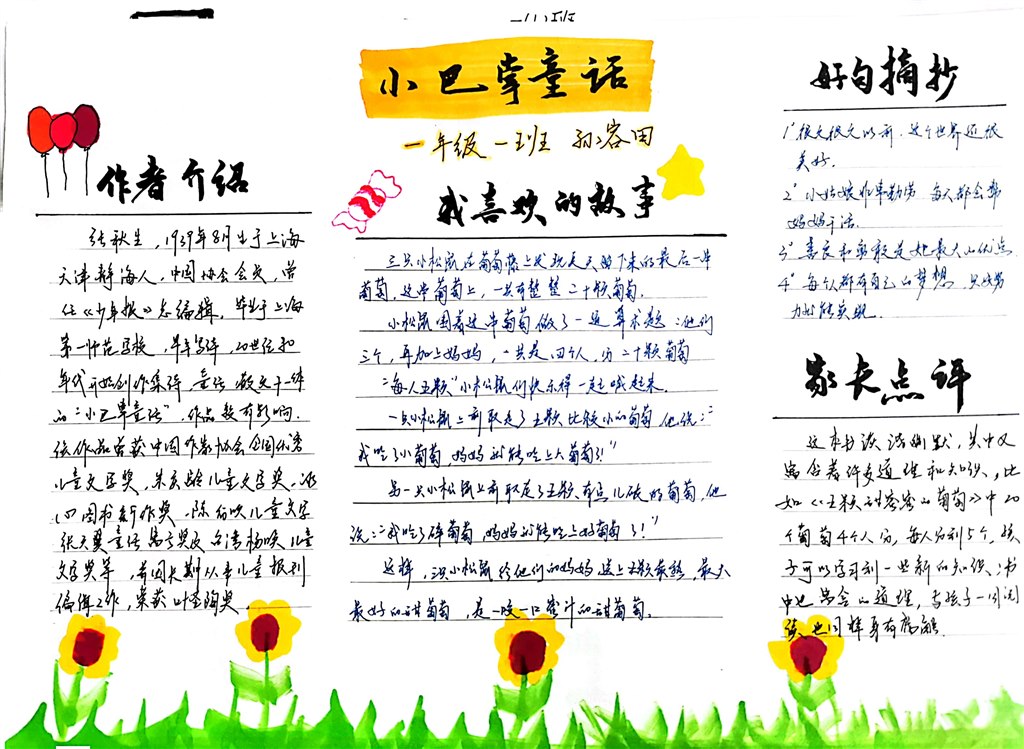 一(1)班
小巴掌童话
一年级一班 孙容田
作者介绍
张秋生,1939年8月生于上海
天津静海人,中国协会会员,曾
任《少年报》总编辑,毕业于上海
第一师范学校,早年写诗,20世纪和
年代开始创作集诗 童话 散文于一体
的"小巴掌童话",作品数有影响.
该作品曾获中国作家协会全国优秀
儿童文学奖,朱庆龄儿童文学奖,冰
心图书新作奖,陈伯吹儿童文学
张天翼童话 奖及台湾杨唤儿童
文学奖等,前因长期从事儿童报刊
编辑工作,荣获叶圣陶奖
我喜欢的故事
三只小松鼠在葡萄藤上发现夏天留下来的最后一串
葡萄,这串葡萄上,一共有整整二十颗葡萄.
小松鼠围着这串葡萄做了一道算术题:他们
三个,再加上妈妈,一共是四个人,分二十颗葡萄
"每人五颗"小松鼠们快乐得一起喊起来.
一只小松鼠上前取走了五颗比较小的葡萄他说:"
我吃了小葡萄,妈妈就能吃上大葡萄了!"
另一只小松鼠上前取走了五颗有点儿破的葡萄,他
说:"我吃了碎葡萄,妈妈就能吃上好葡萄了!"
这样,三只小松鼠给他们的妈妈送上五颗最熟,最大
最好的甜葡萄,是一咬一口蜜汁的甜葡萄。
好句摘抄
1"很久很久以前.这个世界还很
美好.
2"小姑娘非常勤劳 每天都会帮
妈妈干活.
3"善良和勇敢是她最大的优点
4"每个人都有自己的梦想 只能努
力才能实现.
家长点评
这本书诙谐幽默,其中又
富含着许多道理和知识,比
如《五颗甜蜜蜜的葡萄》中20
个葡萄4个人分,每人分到5个,孩
子可以学习到一些新的知识,书
中也富含的道理,与孩子一同阅
读,也同样身有感触.